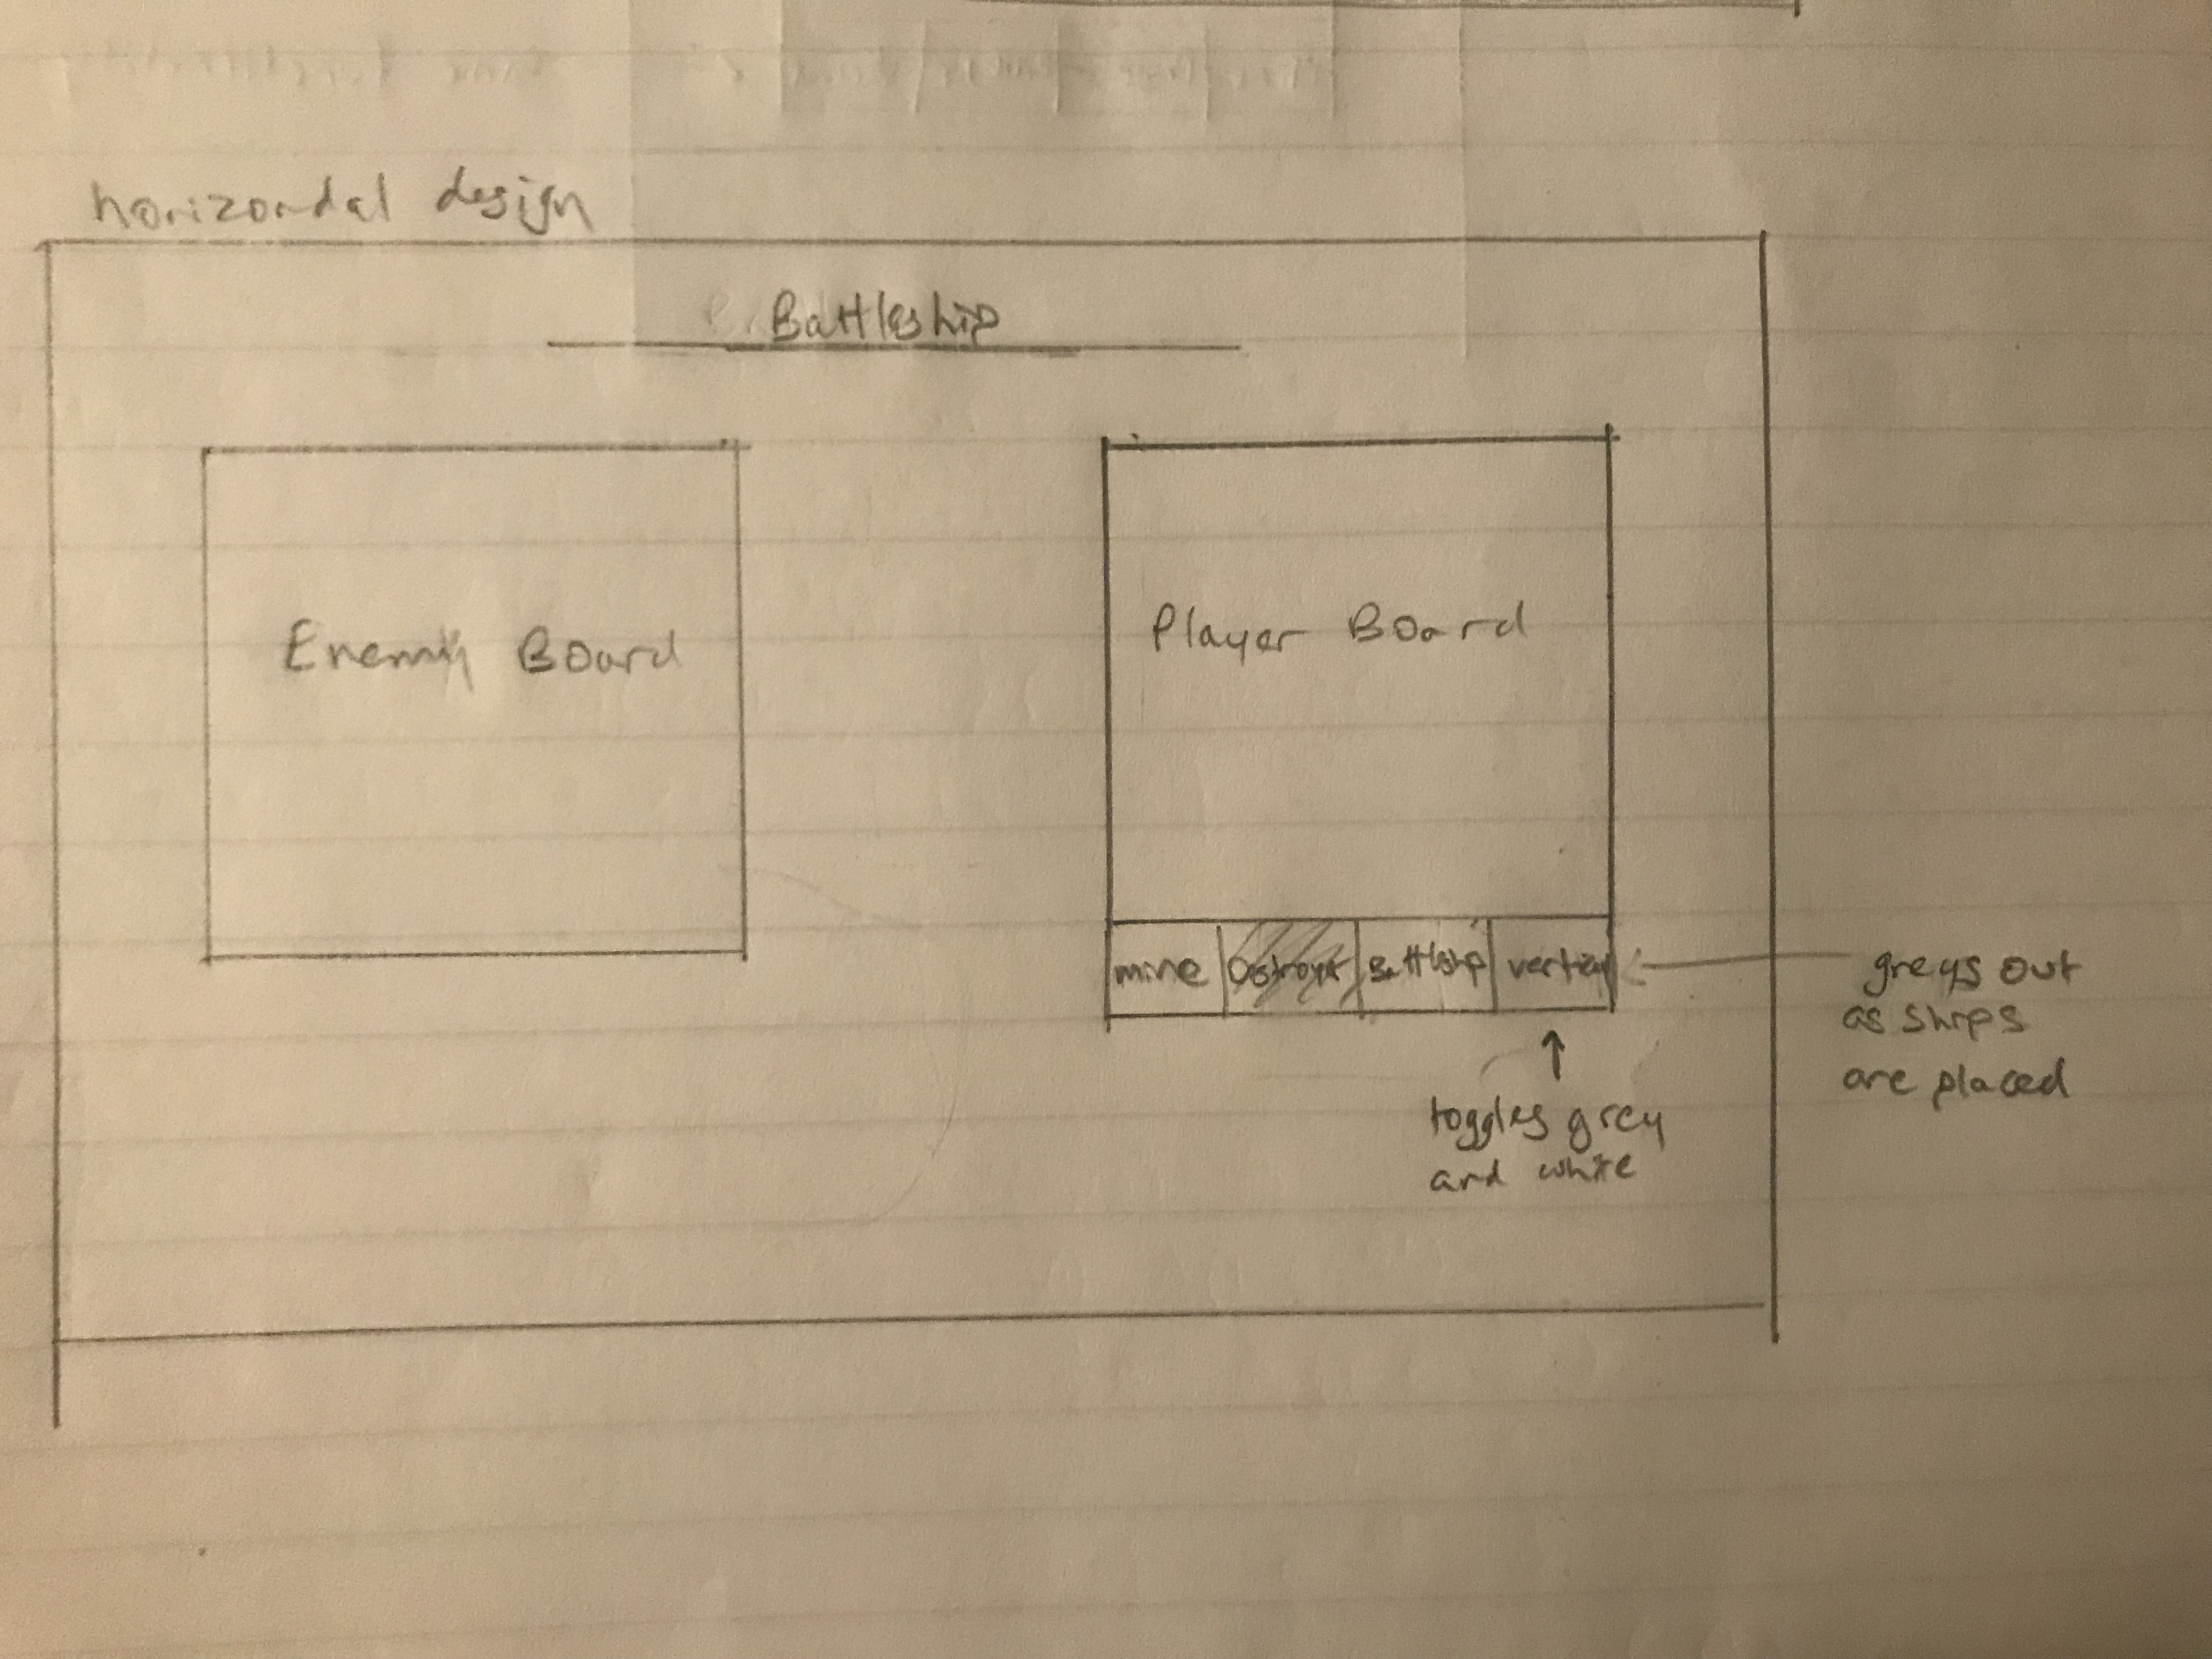 horizondal design
Battleship
Enemy Board
Player Board
mine Destroyer Battlship vertical
greys out
as ships
are placed
toggles grey
and white